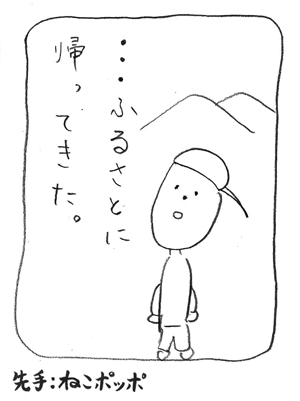 ・・・ふるさとに
帰ってきた。
先手:ねこポッポ